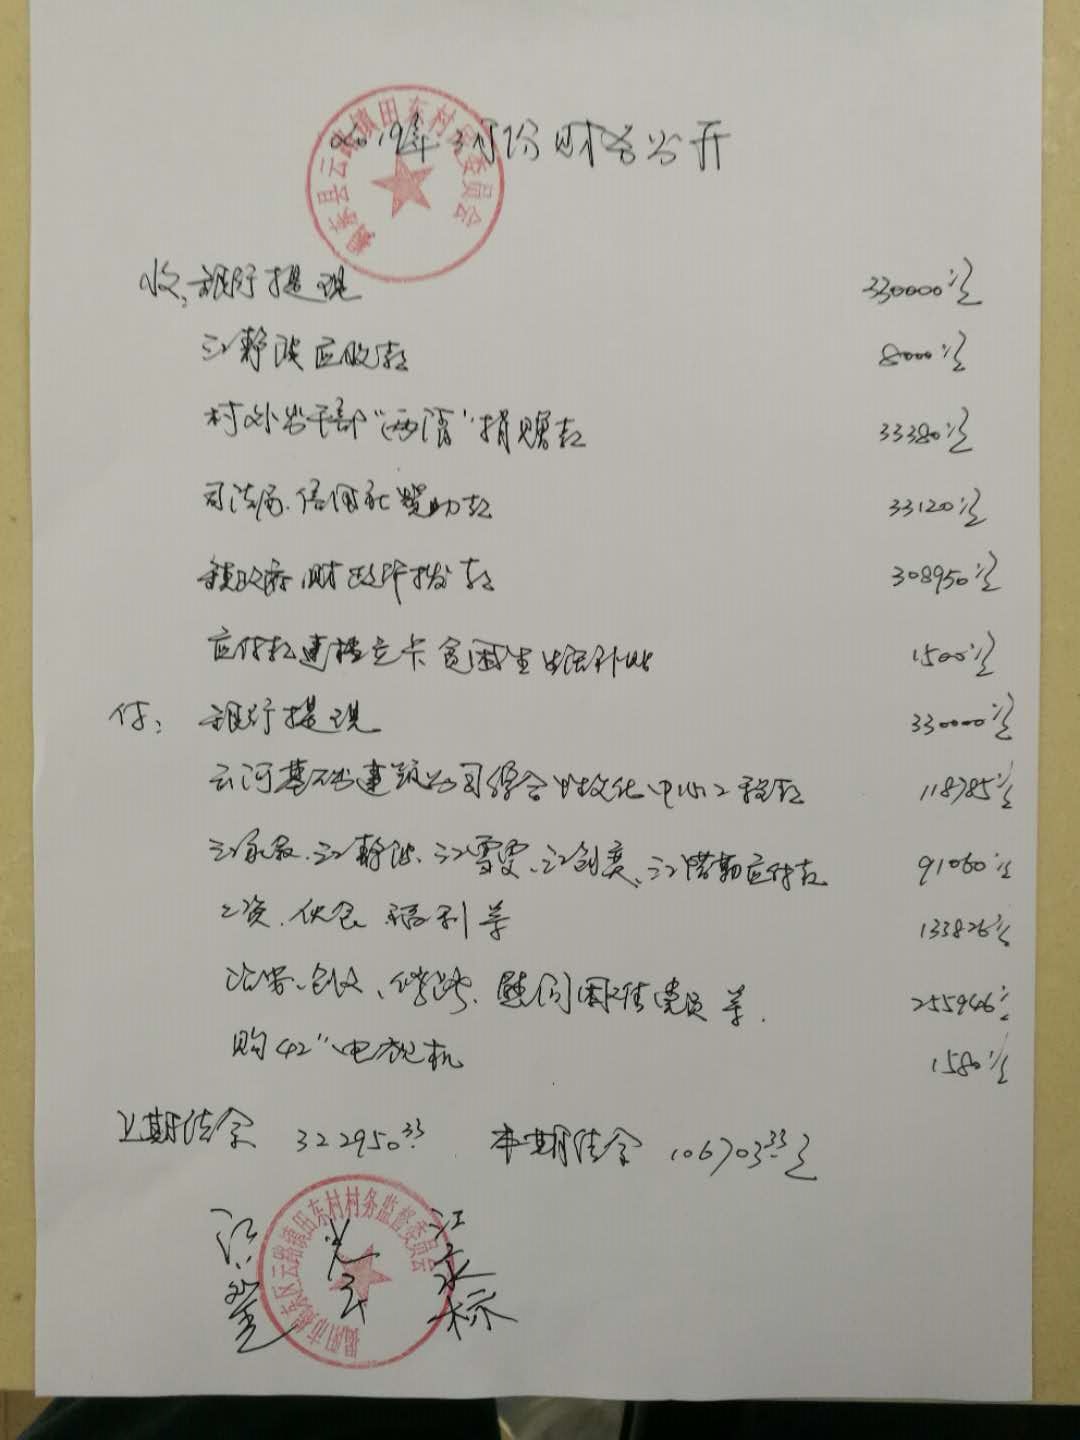 2019年3月份财务公开
揭东县云路镇田东村民委员会
收:银行提现 330000元
江静洪应收款 8000元
村外出干部"两清"捐赠款 33380元
司法局、信用社赞助款 33120元
镇政府财政所拨款 308950元
应付款建档立卡贫困生生活补贴 1500元
付:银行提现 330000元
云河基础建筑公司综合性文化中心工程款 118785元
应付款 91060元
工资、伙食、福利等 133826元
治安、修路、慰问困难党员等. 255946元
购42"电视机 1580元
上期结余 322950.33 本期结余 106703.33元
揭阳市揭东区云路镇田东村村务监督委员会
江 标